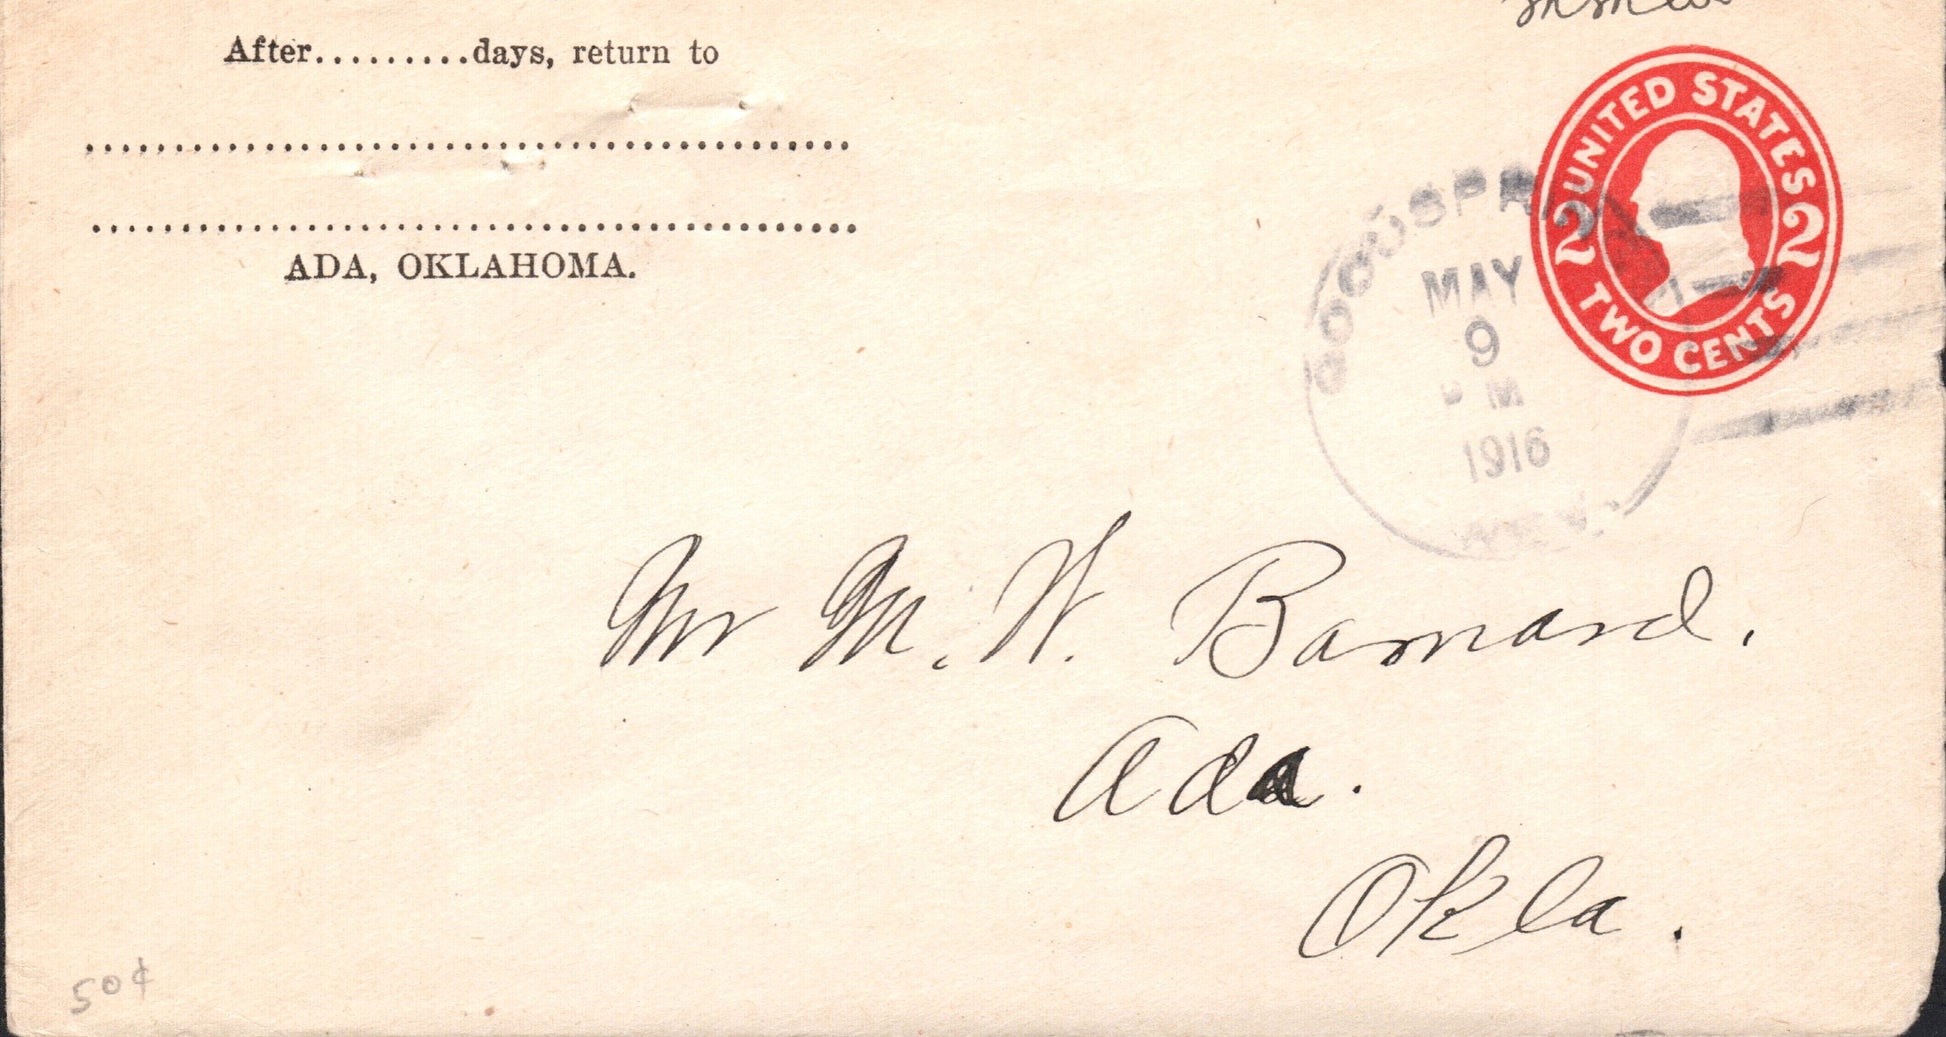 After.........days, return to
ADA, OKLAHOMA.
UNITED STATES
2 2
TWO CENTS
GOODSPR
MAY
9
M
1916
Mr M. W. Barnard.
Ada.
Okla.
50¢